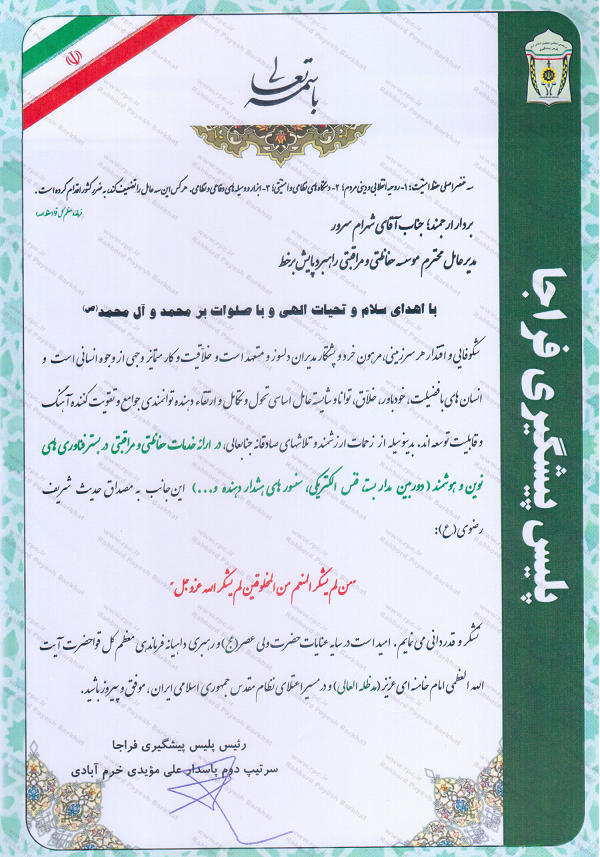 باسمه تعالی
سه عنصر اصلی حفظ امنیّت: ۱- روحیه انقلابی و دینی مردم؛ ۲- دستگاه‌های نظامی و امنیتی؛ ۳- ابزار و وسیله‌های دفاعی و نظامی. هر کس این سه عامل را تضعیف کند، به ضرر کشور اقدام کرده است.
بردار ارجمند؛ جناب آقای شهرام سرور
مدیر عامل محترم موسسه حفاظتی و مراقبتی راهبرد پایش برخط
با اهدای سلام و تحیات الهی و با صلوات بر محمد و آل محمد(ص)
شکوفایی و اقتدار هر سرزمینی، مرهون خرد و پشتکار مدیران دلسوز و متعهد است و خلاّقیت و کار متمایز وجهی از وجوه انسانی است و
انسان های با فضیلت، خودباور، خلاّق، توانا و شایسته عامل اساسی تحول و تکامل و ارتقاء دهنده توانمندی جوامع و تقویت کننده آهنگ
و قابلیت توسعه اند. بدینوسیله از زحمات ارزشمند و تلاشهای صادقانه جنابعالی، در ارائه خدمات حفاظتی و مراقبتی در بستر فناوری های
نوین و هوشمند (دوربین مدار بسته، قفس الکتریکی، سنسور های هشدار دهنده و...) این جانب به مصداق حدیث شریف
رضوی (ع):
"من لم یشکر المنعم من المخلوقین لم یشکر الله عزوجل"
تشکر و قدردانی می نمایم. امید است در سایه عنایات حضرت ولی عصر(عج) و رهبری داهیانه فرماندهی معظم کل قوا حضرت آیت
الله العظمی امام خامنه ای عزیز (مدظله العالی) و در مسیر اعتلای نظام مقدس جمهوری اسلامی ایران، موفق و پیروز باشید.
رئیس پلیس پیشگیری فراجا
سرتیپ دوم پاسدار علی مؤیدی خرم آبادی
پلیس پیشگیری فراجا
www.rpc.ir
Rahbord Payesh Barkhat